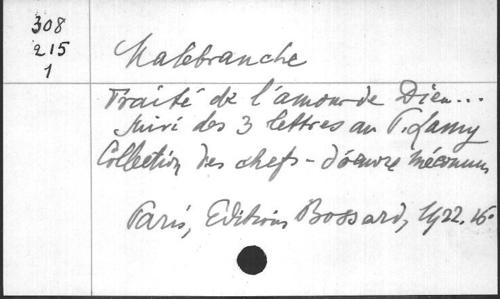 308
215
1
Malebranche
Traité de l'amour de Dieu...
suivi des 3 lettres au P. Lamy
Collection des chefs-d'oeuvre méconnus
Paris, Editions Bossard, 1922. 16°